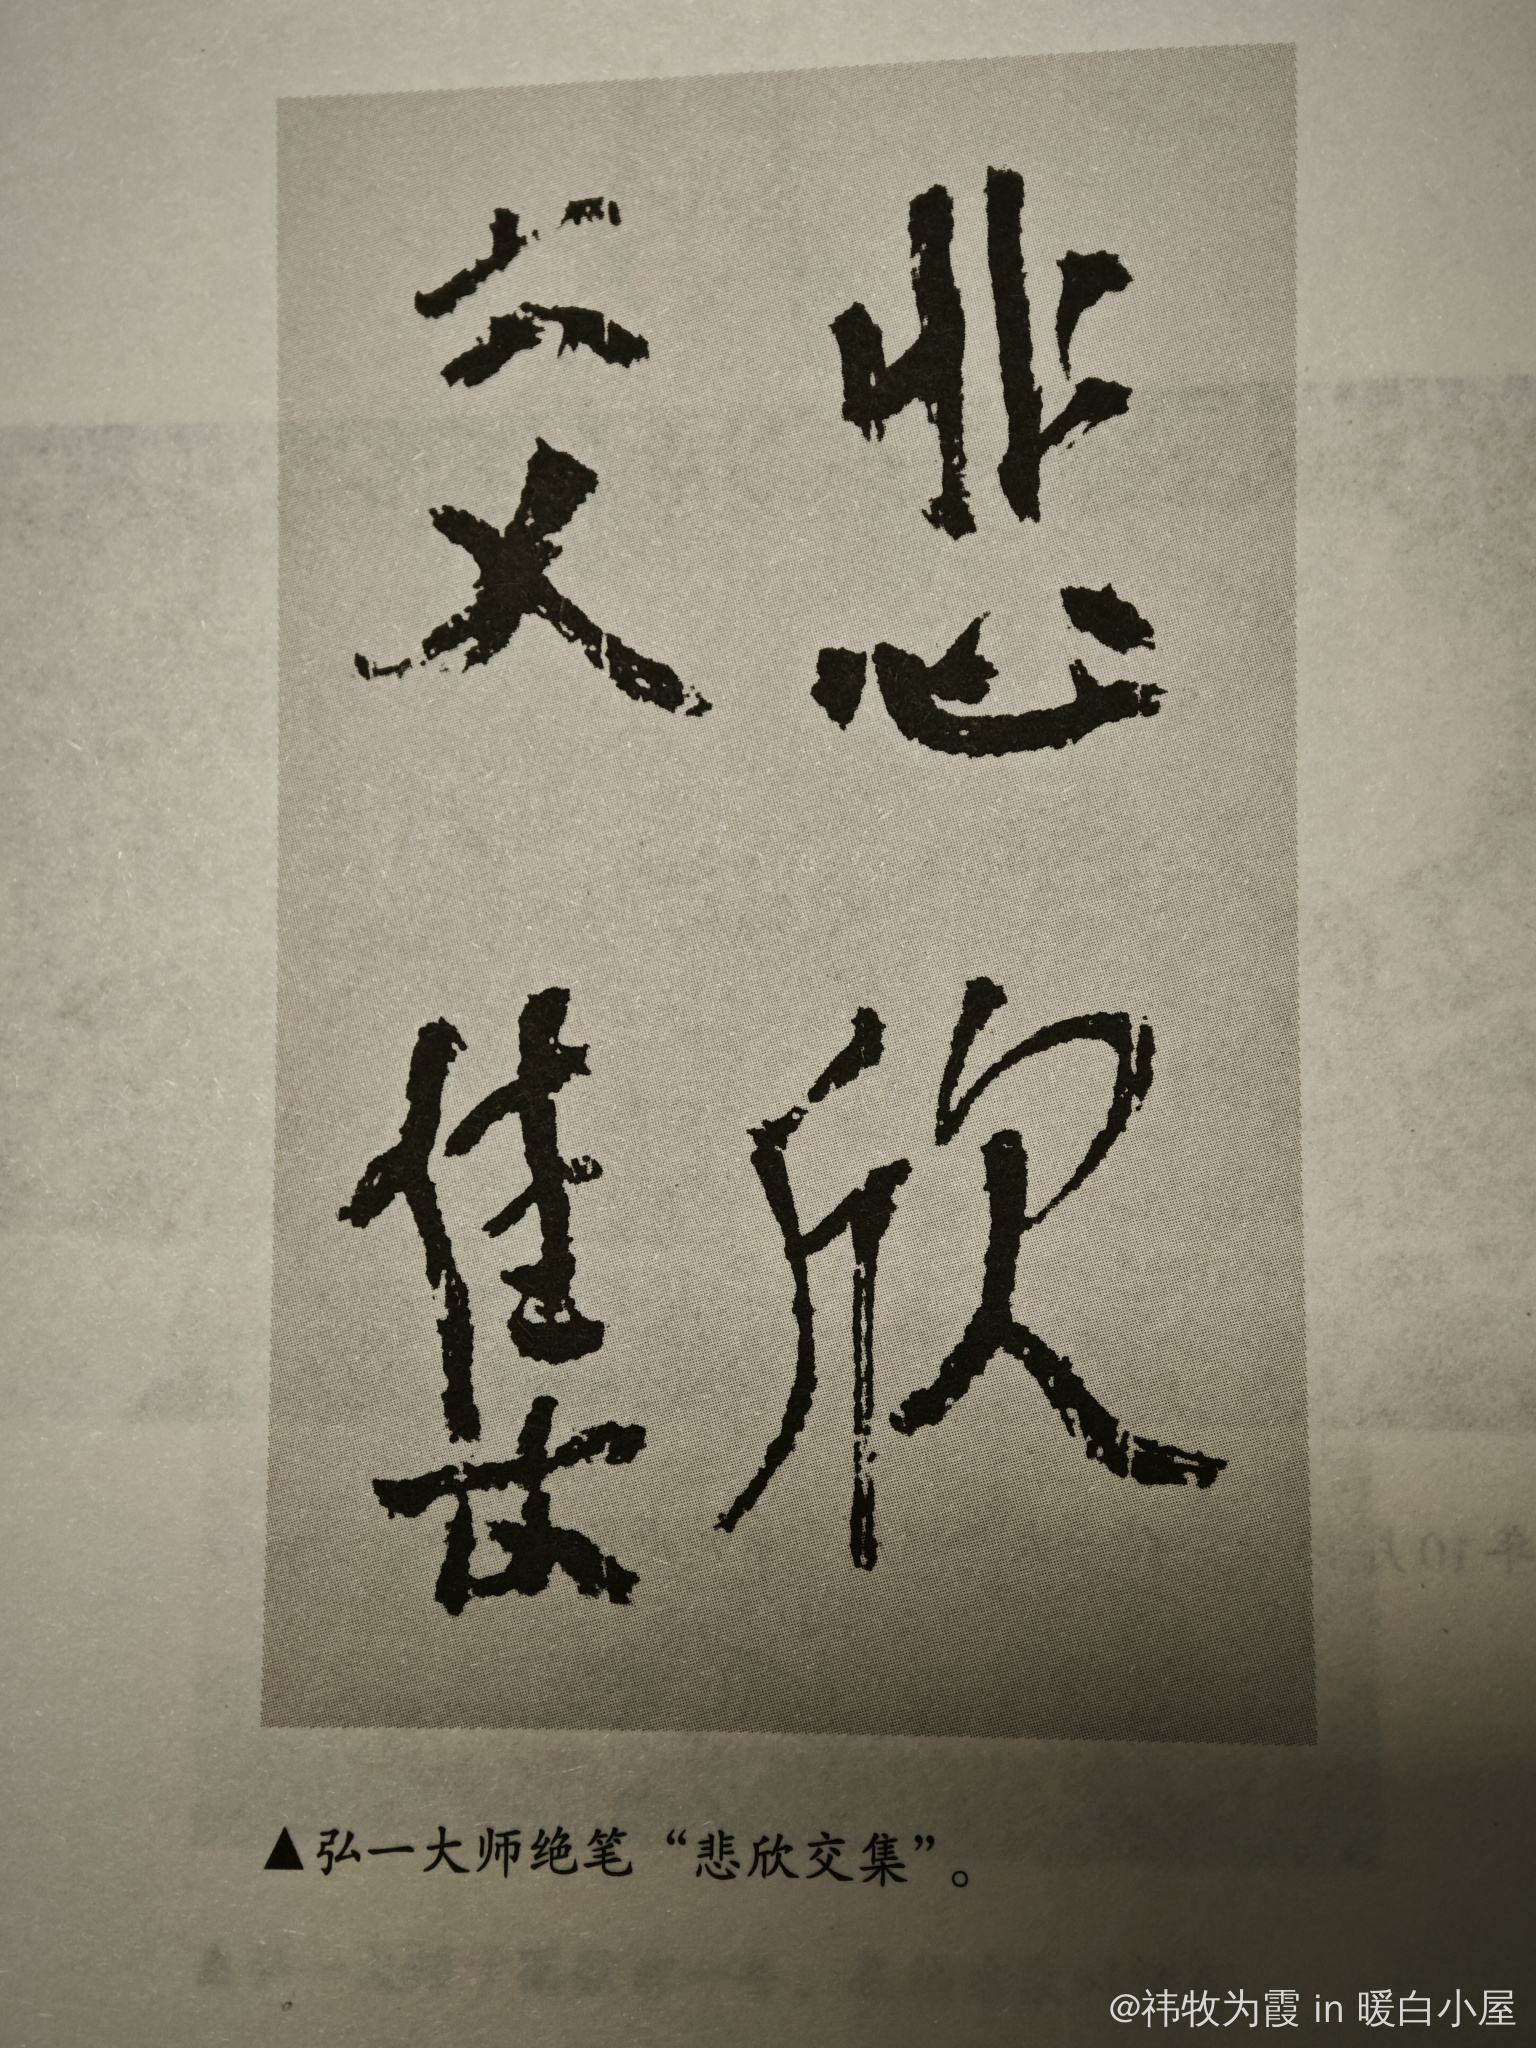 悲欣
交集
▲弘一大师绝笔“悲欣交集”。
年10月
@祎牧为霞 in 暖白小屋